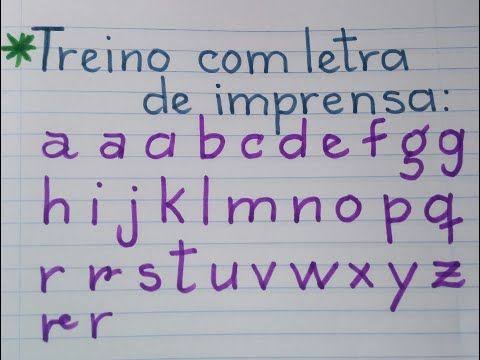 Treino com letra
de imprensa:
a a a b c d e f g g
h i j k l m n o p q
r r s t u v w x y z
r r